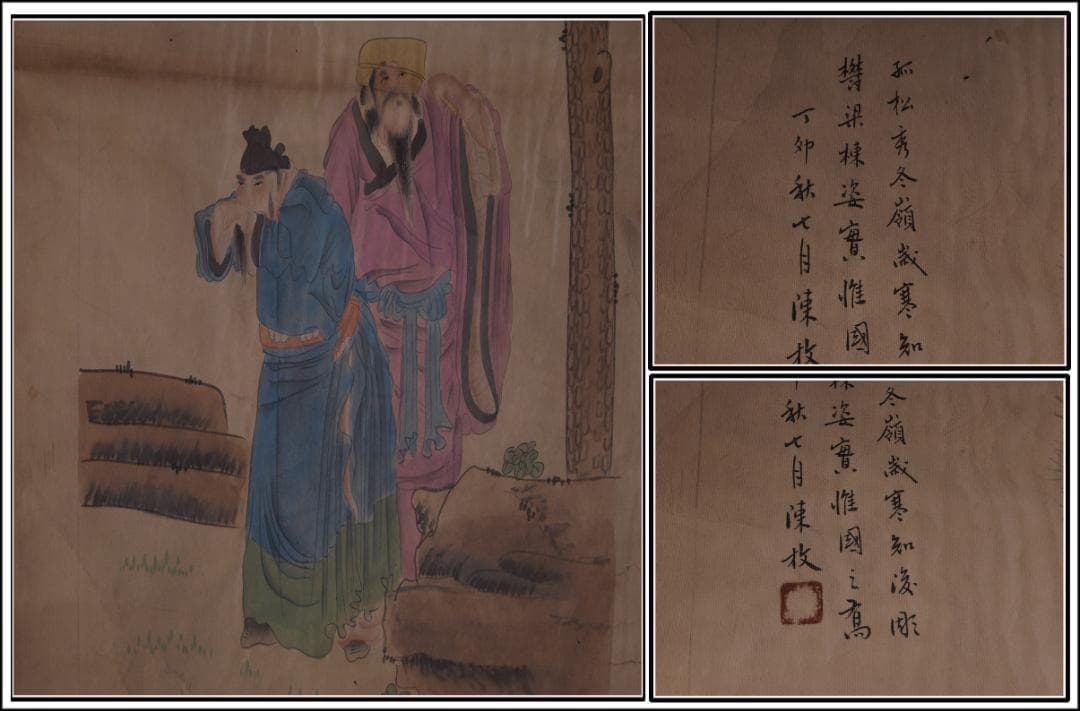 孤松秀冬嶺歲寒知
梁棟姿實惟國
丁卯秋七月陳枚
冬嶺歲寒知後彫
棟姿實惟國之
秋七月陳枚